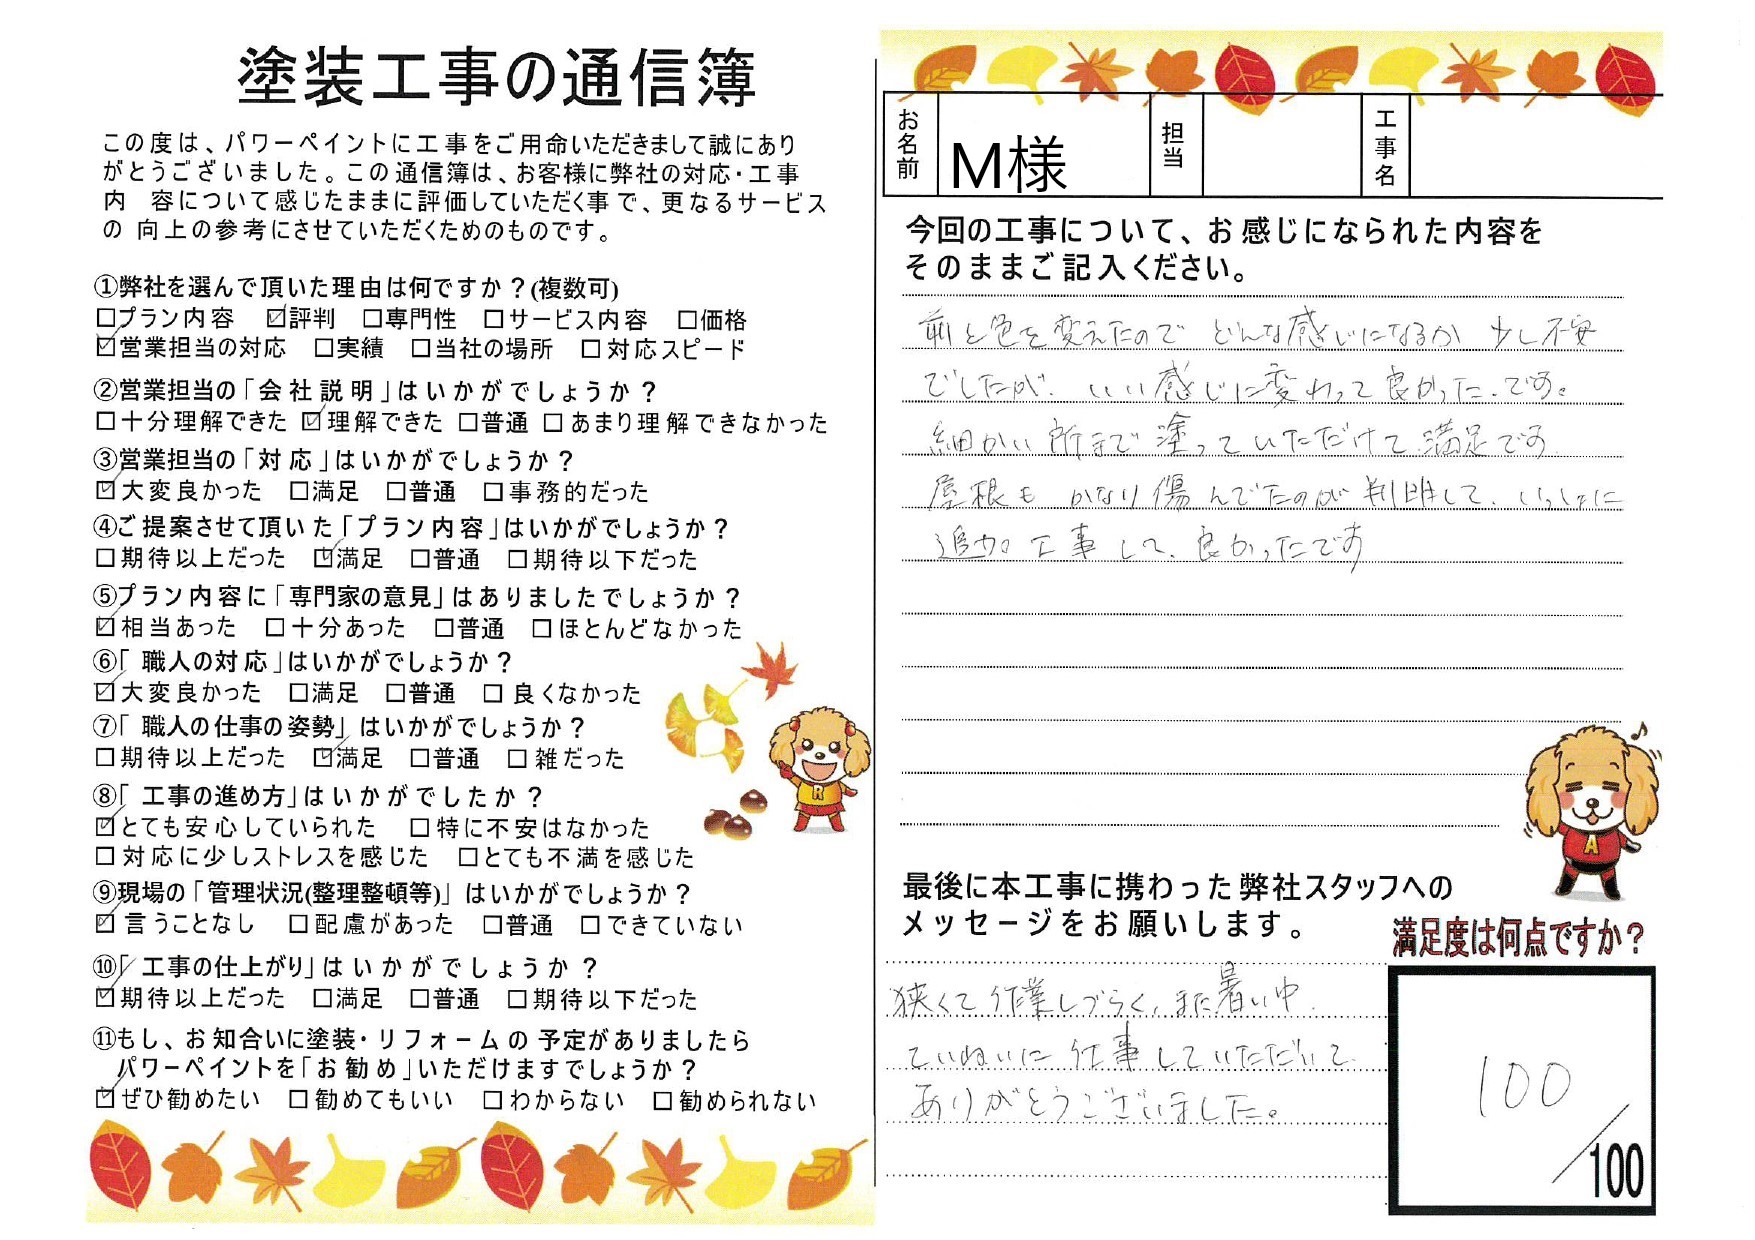 塗装工事の通信簿
この度は、パワーペイントに工事をご用命いただきまして誠にあり
がとうございました。この通信簿は、お客様に弊社の対応・工事
内 容について感じたままに評価していただく事で、更なるサービス
の 向上の参考にさせていただくためのものです。
①弊社を選んで頂いた理由は何ですか?(複数可)
□プラン内容 ☑評判 □専門性 □サービス内容 □価格
☑営業担当の対応 □実績 □当社の場所 □対応スピード
②営業担当の「会社説明」はいかがでしょうか?
□十分理解できた ☑理解できた □普通 □あまり理解できなかった
③営業担当の「対応」はいかがでしょうか?
☑大変良かった □満足 □普通 □事務的だった
④ご提案させて頂いた「プラン内容」はいかがでしょうか?
□期待以上だった ☑満足 □普通 □期待以下だった
⑤プラン内容に「専門家の意見」はありましたでしょうか?
☑相当あった □十分あった □普通 □ほとんどなかった
⑥「職人の対応」はいかがでしょうか?
☑大変良かった □満足 □普通 □良くなかった
⑦「職人の仕事の姿勢」はいかがでしょうか?
□期待以上だった ☑満足 □普通 □雑だった
⑧「工事の進め方」はいかがでしたか?
☑とても安心していられた □特に不安はなかった
□対応に少しストレスを感じた □とても不満を感じた
⑨現場の「管理状況(整理整頓等)」はいかがでしょうか?
☑言うことなし □配慮があった □普通 □できていない
⑩「工事の仕上がり」はいかがでしょうか?
☑期待以上だった □満足 □普通 □期待以下だった
⑪もし、お知合いに塗装・リフォームの予定がありましたら
パワーペイントを「お勧め」いただけますでしょうか?
☑ぜひ勧めたい □勧めてもいい □わからない □勧められない
R
お名前 M様 担当 工事名
今回の工事について、お感じになられた内容を
そのままご記入ください。
前と色を変えたので どんな感じになるか 少し不安
でしたが、いい感じに変わって良かったです。
細かい所まで塗っていただけて満足です
屋根も かなり傷んでたのが判明して、いっしょに
追加工事して、良かったです
A
最後に本工事に携わった弊社スタッフへの
メッセージをお願いします。
狭くて作業しづらく、また暑い中
ていねいに仕事していただいて
ありがとうございました。
満足度は何点ですか?
100
/100